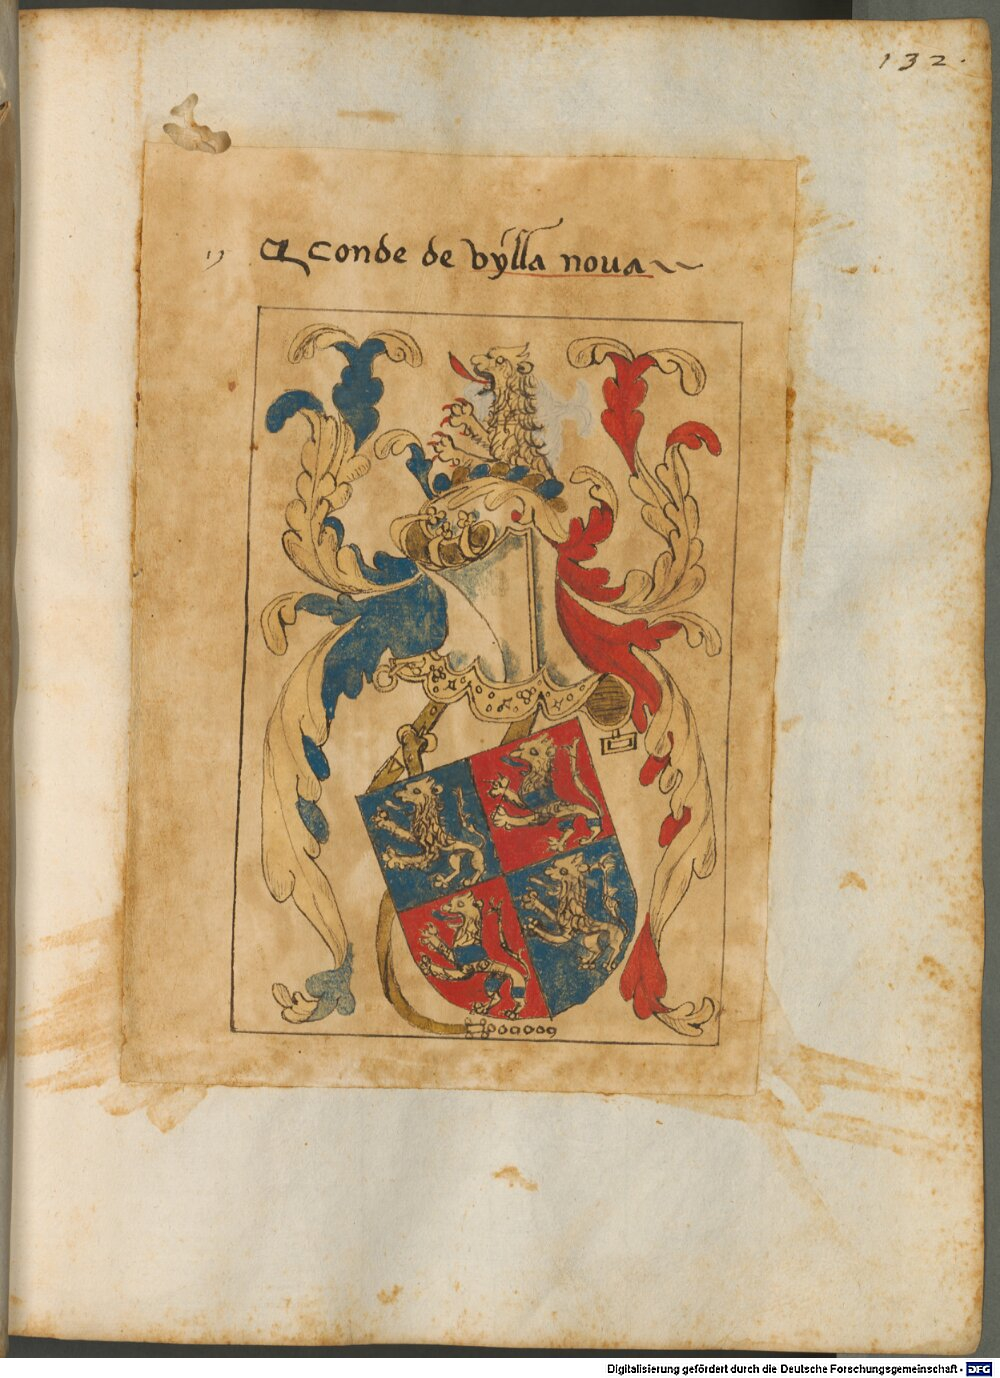 132.
O conde de vylla nova
Digitalisierung gefördert durch die Deutsche Forschungsgemeinschaft - DFG